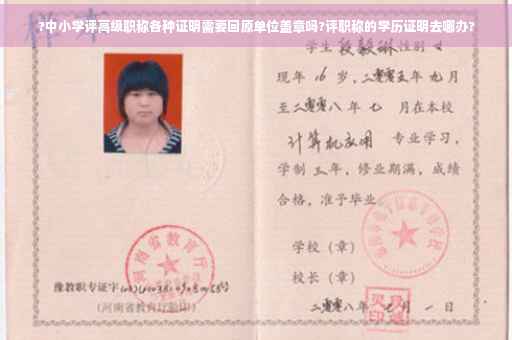 ?中小学评高级职称各种证明需要回原单位盖章吗?评职称的学历证明去哪办?
样本
学生段毅琳性别女
现年16岁,二零零五年九月
至二零零八年七月在本校
计算机应用 专业学习,
学制三年,修业期满,成绩
合格,准予毕业
学校(章)
校长(章)
二零零八年七月一日
河南省教育厅
豫教职专证字
(河南省教育厅验印)